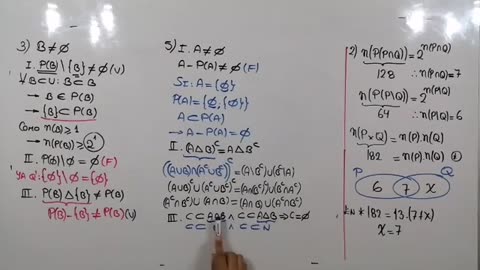 3) B≠∅
I. P(B)\{B}≠∅(V)
∀B⊂U: B⊂B
→ B∈P(B)
→ {B}⊂P(B)
Como n(B)≥1
→ n(P(B))≥2¹
II. P(∅)\∅=∅(F)
YA Q': {∅}\∅={∅}
III. P(B)△{B}≠P(B)
P(B)-{B}≠P(B)(V)
5) I. A≠∅
A-P(A)≠∅(F)
SI: A={∅}
P(A)={∅,{∅}}
A⊂P(A)
→ A-P(A)=∅
II. (A△B)ᶜ=A△Bᶜ
((A∪B)∩(Aᶜ∪Bᶜ))ᶜ=(A\Bᶜ)∪(Bᶜ\A)
(A∪B)ᶜ∪(Aᶜ∪Bᶜ)ᶜ=(A∩B)∪(Bᶜ∩Aᶜ)
(Aᶜ∩Bᶜ)∪(A∩B)=(A∩B)∪(Aᶜ∩Bᶜ)
III. C⊂ ∧ C⊂A△B⇒C=∅
C⊂ ∧ C⊂N
2) n(P(P∩Q))=2ⁿ⁽ᴾ∩Q⁾
128 ∴n(P∩Q)=7
n(P(P))=2ⁿ⁽ᴾ⁾
64 ∴n(P)=6
n(P×Q)=n(P).n(Q)
182 = n(P).n(Q)
P Q
6 7 x
182=13.(7+x)
x=7